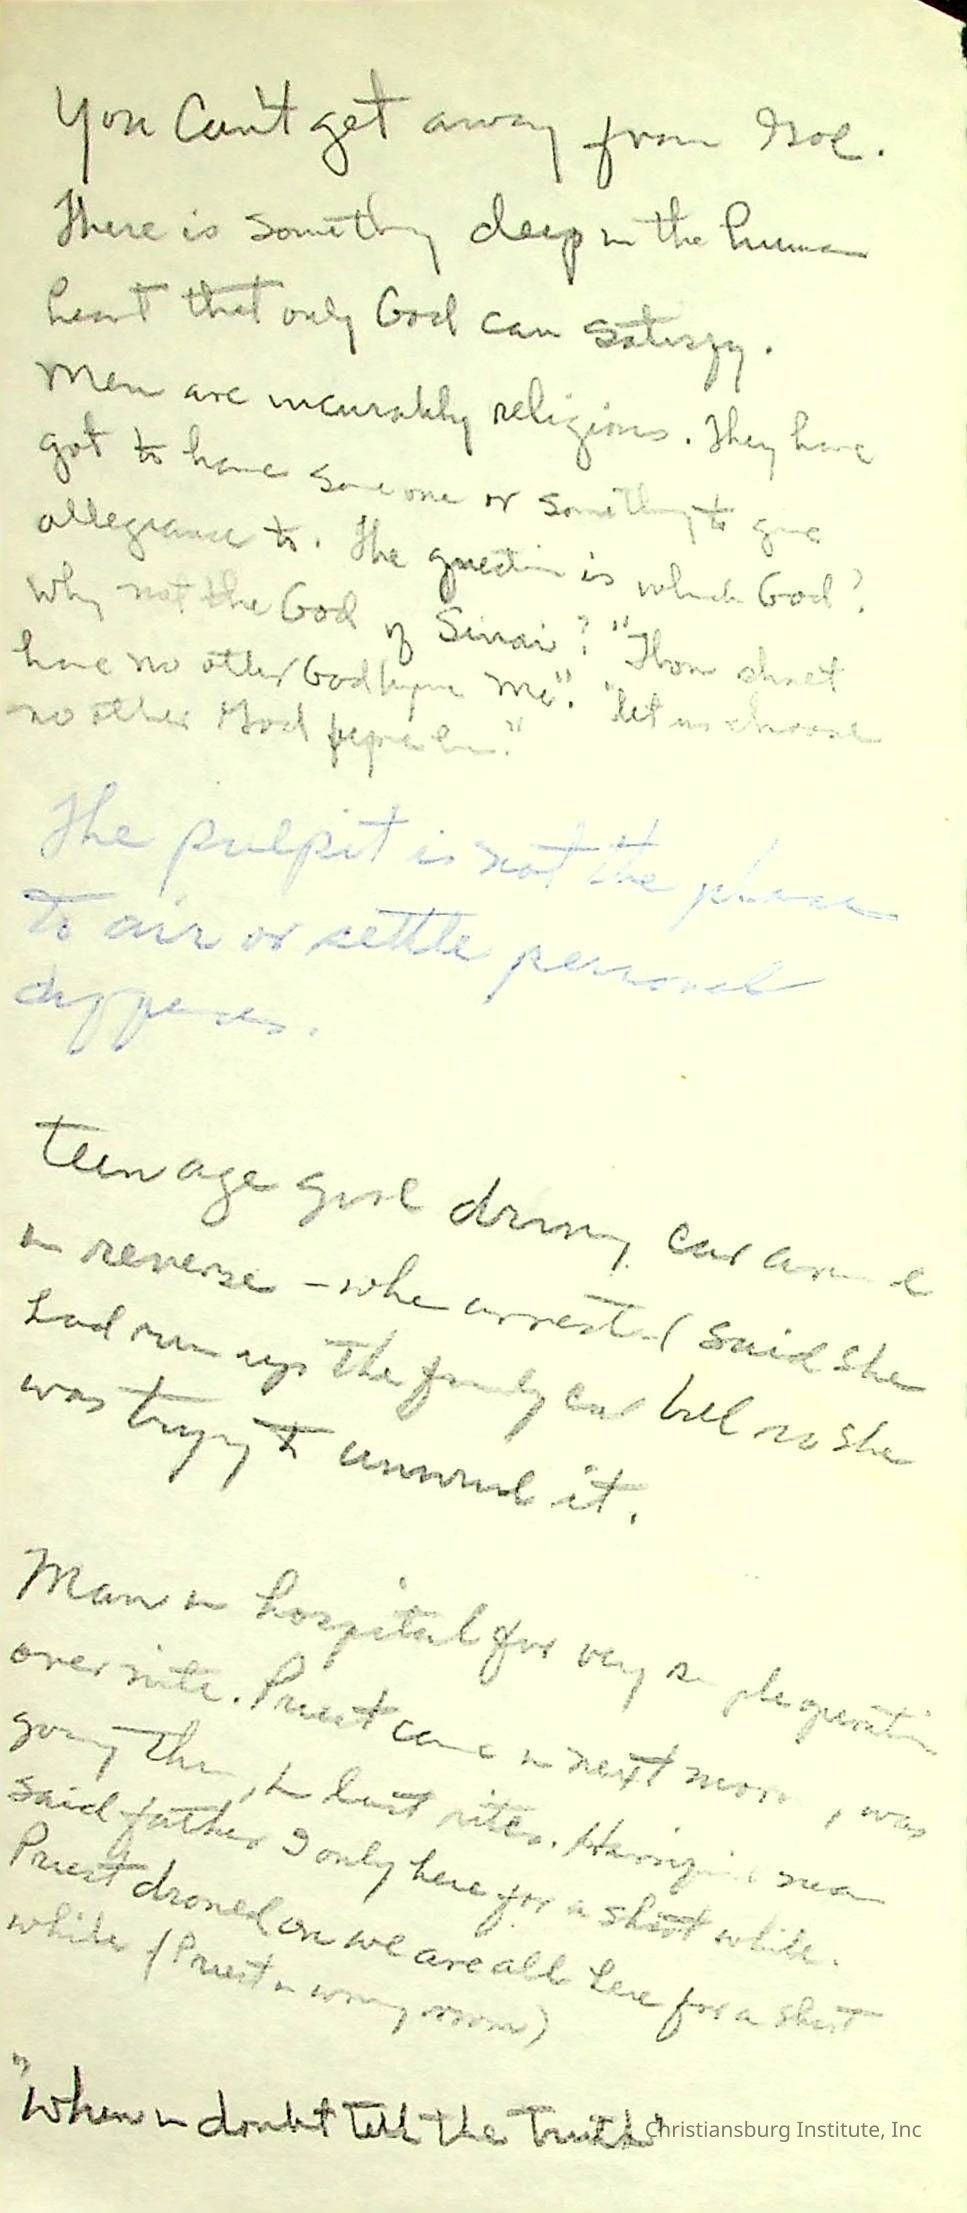 You Can't get away from God.
There is something deep in the human
heart that only God can satisfy.
Men are incurably religious. They have
got to have some one or something to give
allegiance to. The question is which God?
Why not the God of Sinai? "Thou shalt
have no other God before Me". "let us choose
no other God before him."
The pulpit is not the place
to air or settle personal
differences.
teen age girl driving car around
in reverse - when arrested said she
had run up the family car bill so she
was trying to unwind it.
Man in hospital for very simple operation
over nite. Priest came in next morn, was
going thru the last rites. Having man
said father I only here for a short while.
Priest droned on we are all here for a short
while (Priest in wrong room)
"When in doubt tell the truth"
Christiansburg Institute, Inc